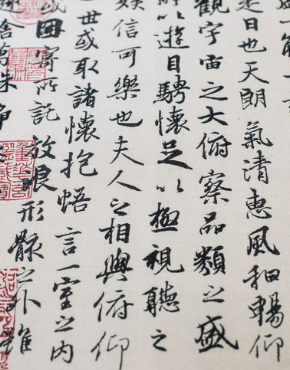 是日也天朗氣清惠風和暢仰
觀宇宙之大俯察品類之盛
所以遊目騁懷足以極視聽之
娛信可樂也夫人之相與俯仰
世或取諸懷抱悟言一室之內
或因寄所託放浪形骸之外雖
舍萬殊靜